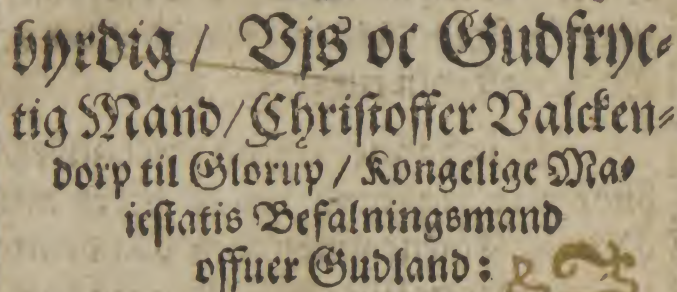 byrdig / Vjs oc Gudfryc⸗
tig Mand / Christoffer Valcken⸗
dorp til Glorup / Kongelige Ma⸗
iestatis Befalningsmand
offuer Gudland: